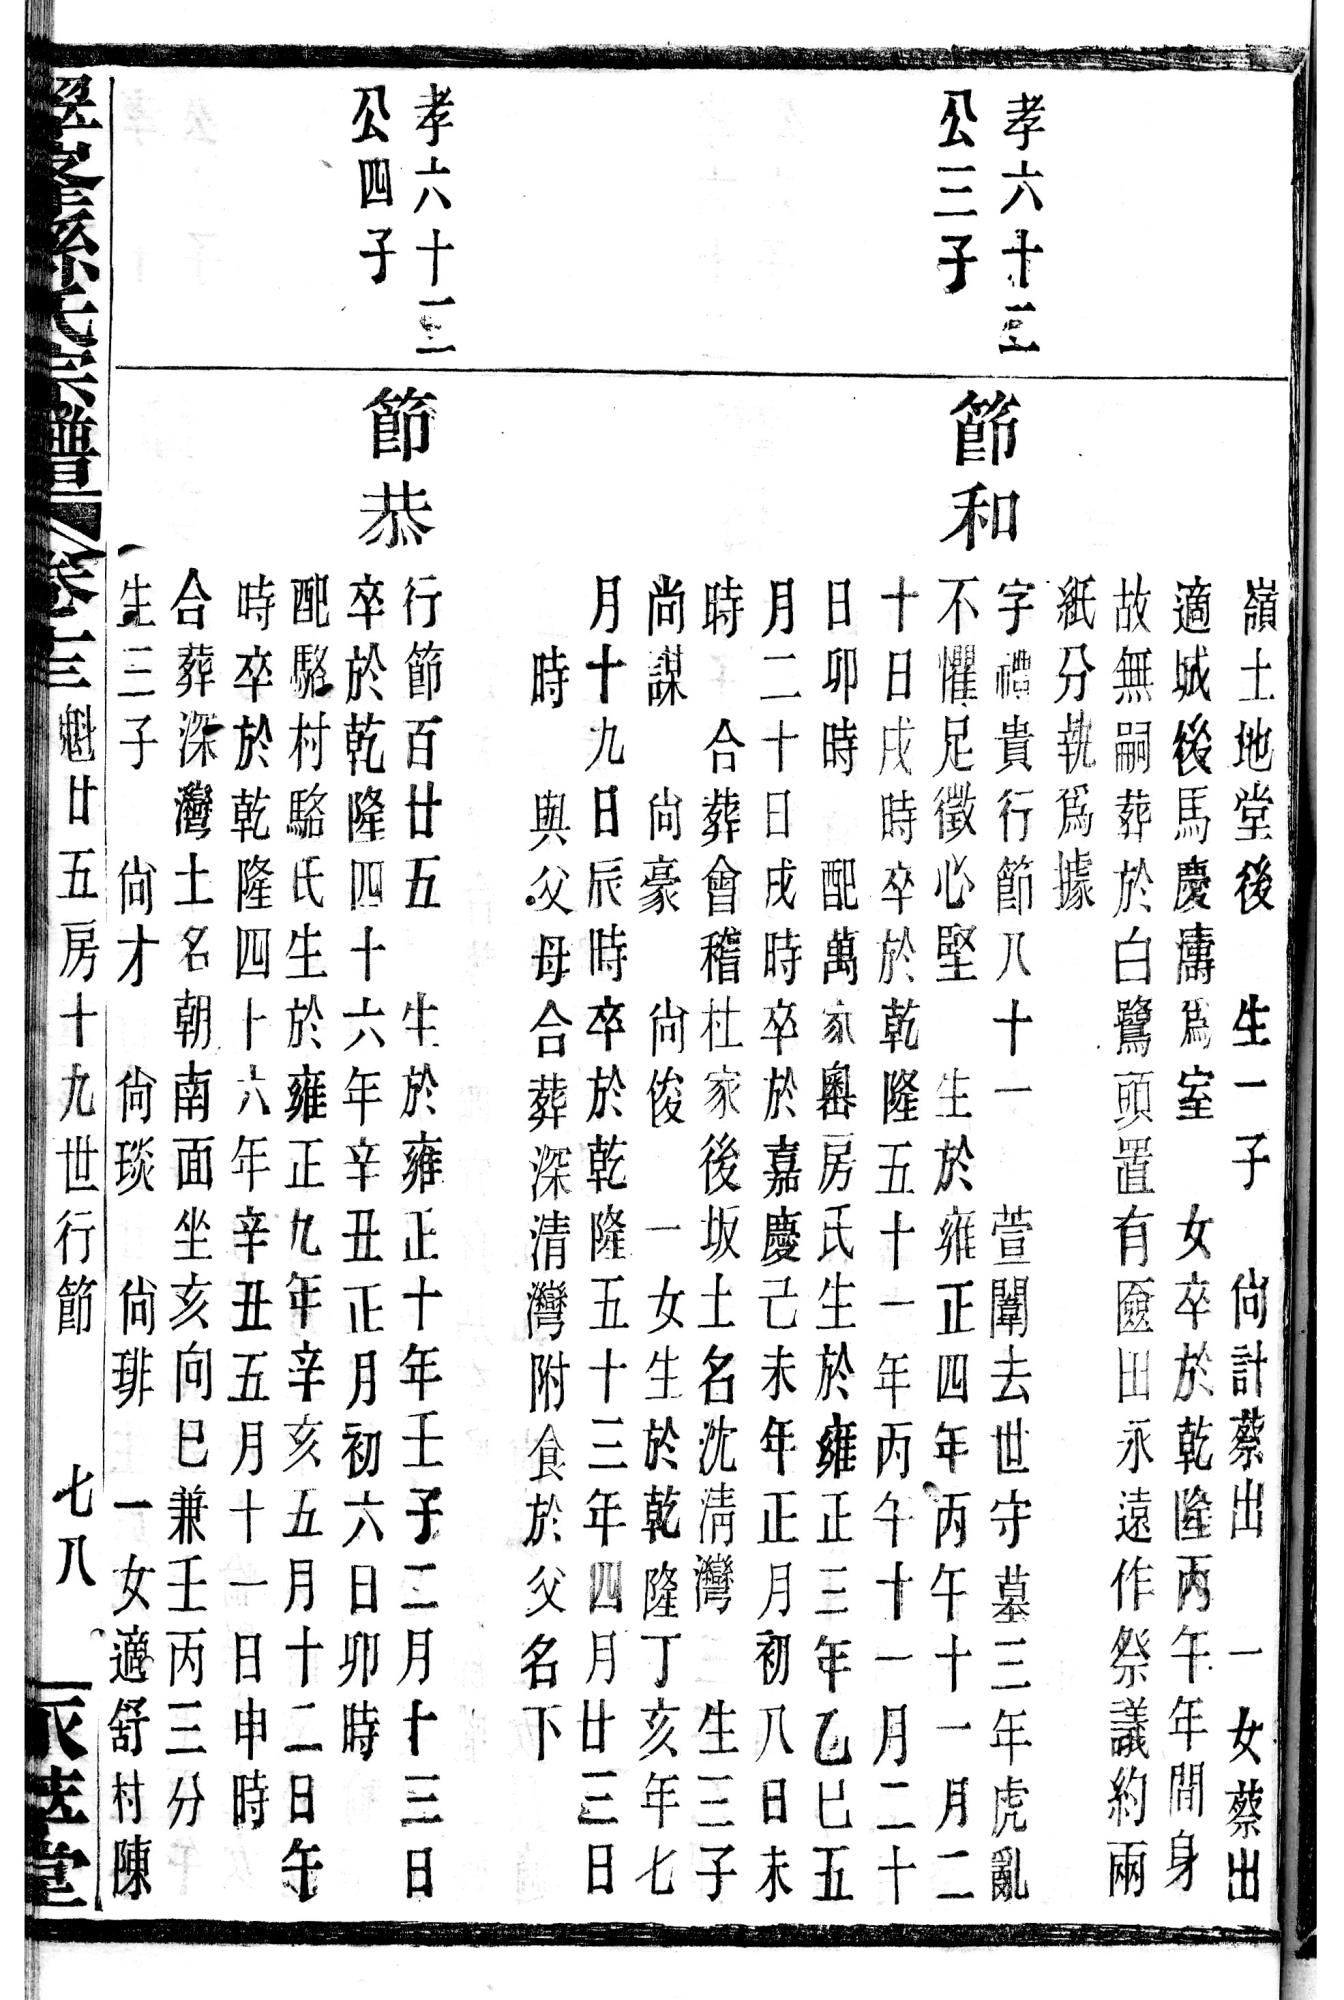 嶺土地堂後　生一子　尙計蔡出　一女蔡出
適城後馬慶㻿爲室　女卒於乾隆丙午年間身
故無嗣葬於白鷺頭置有匳田永遠作祭議約兩
紙分執爲據
孝六十三
公三子
節和
字禮貴行節八十一　萱闈去世守墓三年虎亂
不懼足徵心堅　生於雍正四年丙午十一月二
十日戌時卒於乾隆五十一年丙午十一月二十
日卯時　配萬家嶴房氏生於雍正三年乙巳五
月二十日戌時卒於嘉慶己未年正月初八日未
時　合葬會稽杜家後坂土名沈清灣　生三子
尚謀　尙豪　尙俊　一女生於乾隆丁亥年七
月十九日辰時卒於乾隆五十三年四月廿三日
時　與父母合葬深清灣附食於父名下
孝六十三
公四子
節恭
行節百廿五　生於雍正十年壬子二月十三日
卒於乾隆四十六年辛丑正月初六日卯時
配駱村駱氏生於雍正九年辛亥五月十二日午
時卒於乾隆四十六年辛丑五月十一日申時
合葬深灣土名朝南面坐亥向巳兼壬丙三分
生三子　尙才　尙琰　尙琲　一女適舒村陳
孫氏宗譜　卷十三　魁廿五房十九世行節　七八　堂